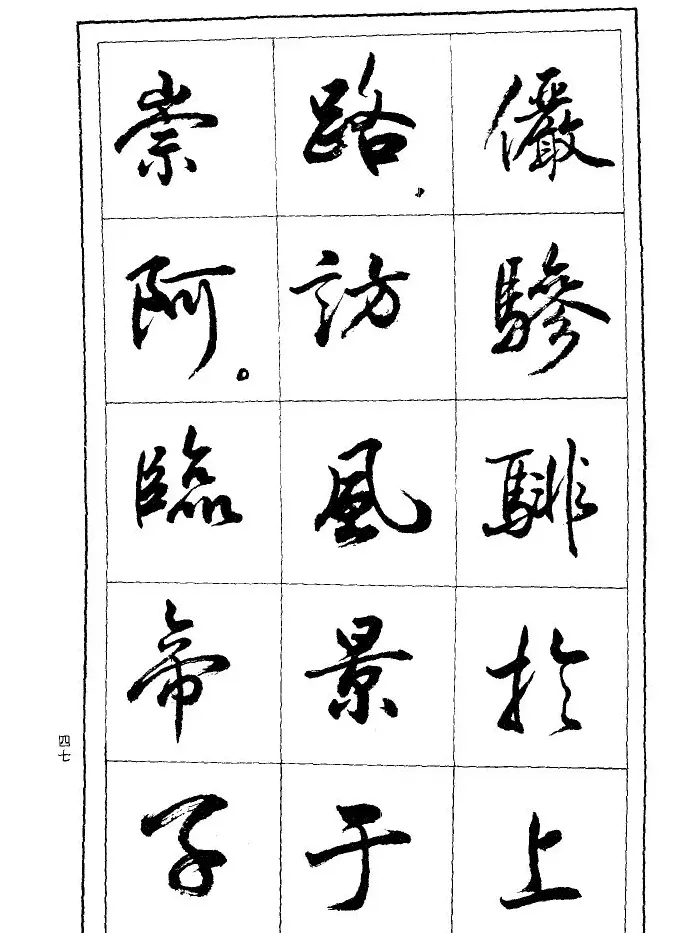 儼驂騑於上
路，訪風景于
崇阿。臨帝子
四七